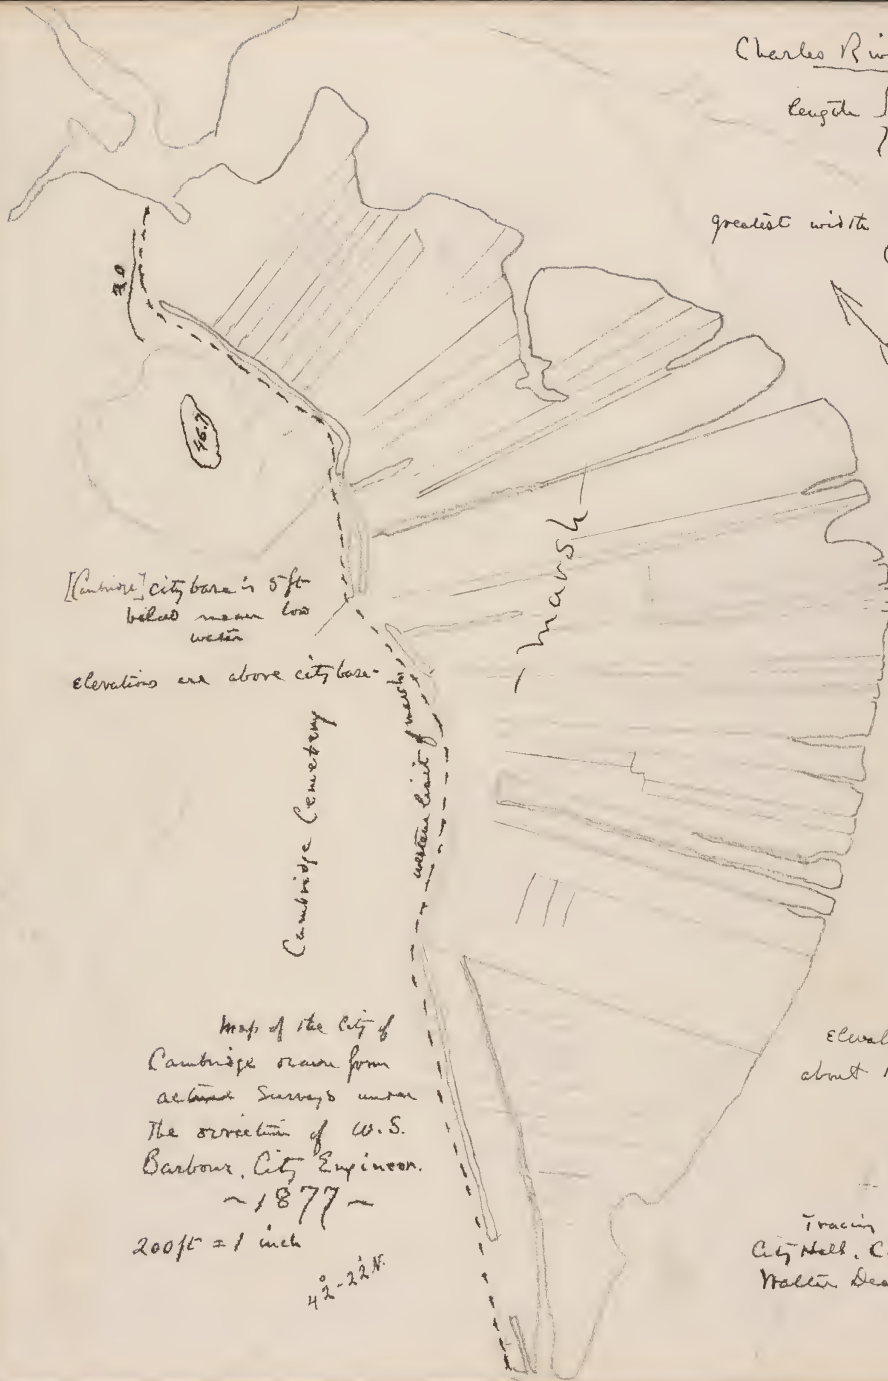 Charles Riv
length
greatest width
30
46.7
marsh
[Cambridge] city base is 5 ft
below mean low
water
Elevations are above city base
western limit of marsh
Cambridge Cemetery
Map of the City of
Cambridge drawn from
actual Surveys under
the direction of W.S.
Barbour, City Engineer.
~1877~
200 ft = 1 inch
42°-22' N.
Eleva
about
Tracin
City Hall, C
Walter Dea